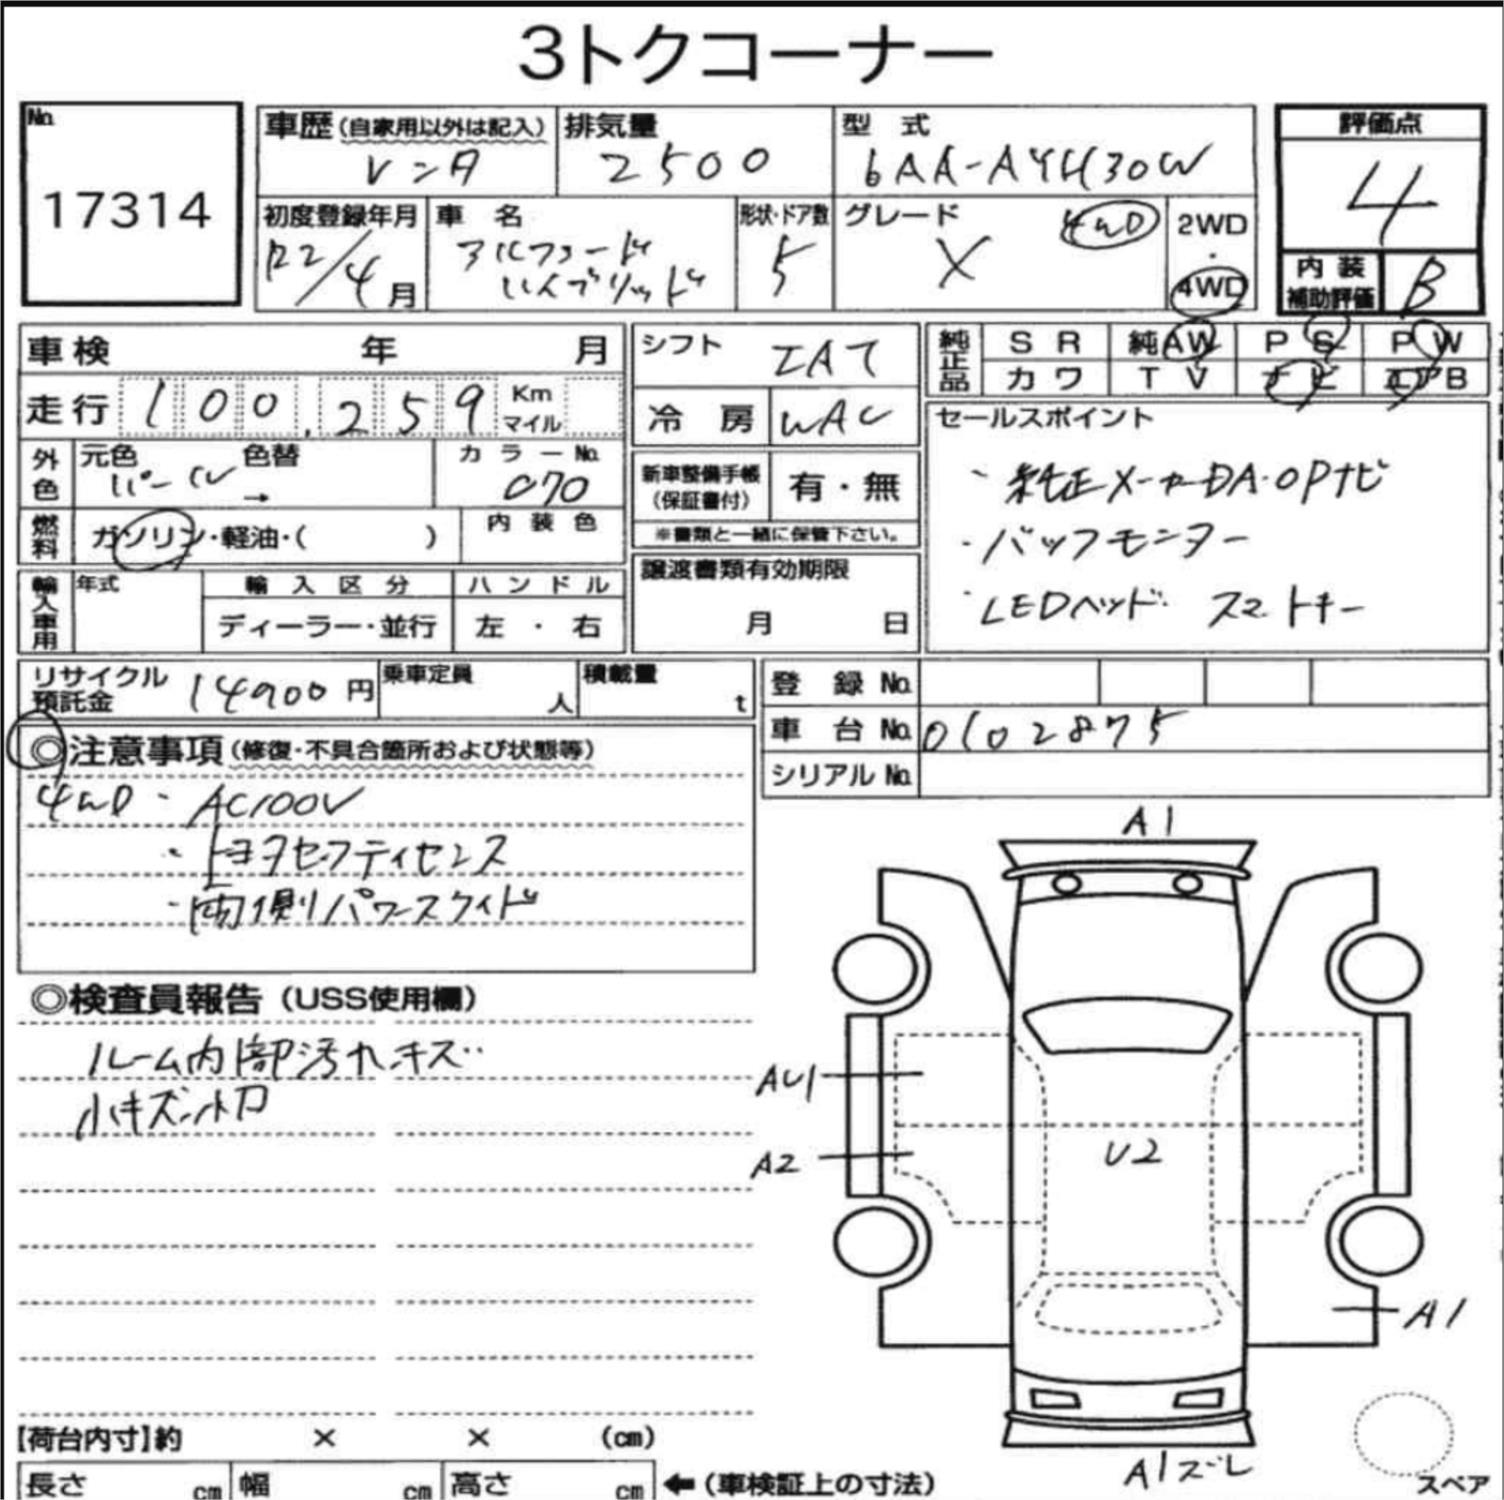 3トクコーナー
No.
17314
車歴(自家用以外は記入)
レンタ
排気量
2500
型 式
6AA-AYH30W
評価点
4
初度登録年月
R2/4月
車 名
アルファード
ハイブリッド
形状・ドア数
5
グレード
X
4WD
2WD
・
4WD
内 装
補助評価
B
車検 年 月
シフト
IAT
純正品
S R
純AW
P S
P W
カ ワ
T V
ナ ビ
エアB
走行 100,259 Km
マイル
冷 房
WAC
セールスポイント
・純正メーカーDA・OPナビ
・バックモニター
・LEDヘッド・スマートキー
外色
元色 色替
パール →
カラーNo.
070
新車整備手帳
(保証書付)
有・無
※書類と一緒に保管下さい。
燃料
ガソリン・軽油・( )
内装色
輸入車用
年式
輸 入 区 分
ディーラー・並行
ハ ン ド ル
左 ・ 右
譲渡書類有効期限
月 日
リサイクル
預託金
14900円
乗車定員
人
積載量
t
登 録 No.
車 台 No. 0102875
シリアル No.
◎注意事項(修復・不具合箇所および状態等)
4WD・AC100V
・トヨタセーフティセンス
・両側パワースライド
◎検査員報告(USS使用欄)
ルーム内部汚れキズ
小キズ小凹
A1
AU1
A2
U2
A1
A1ズレ
スペア
【荷台内寸】約 × × (cm)
長さ cm
幅 cm
高さ cm
←(車検証上の寸法)